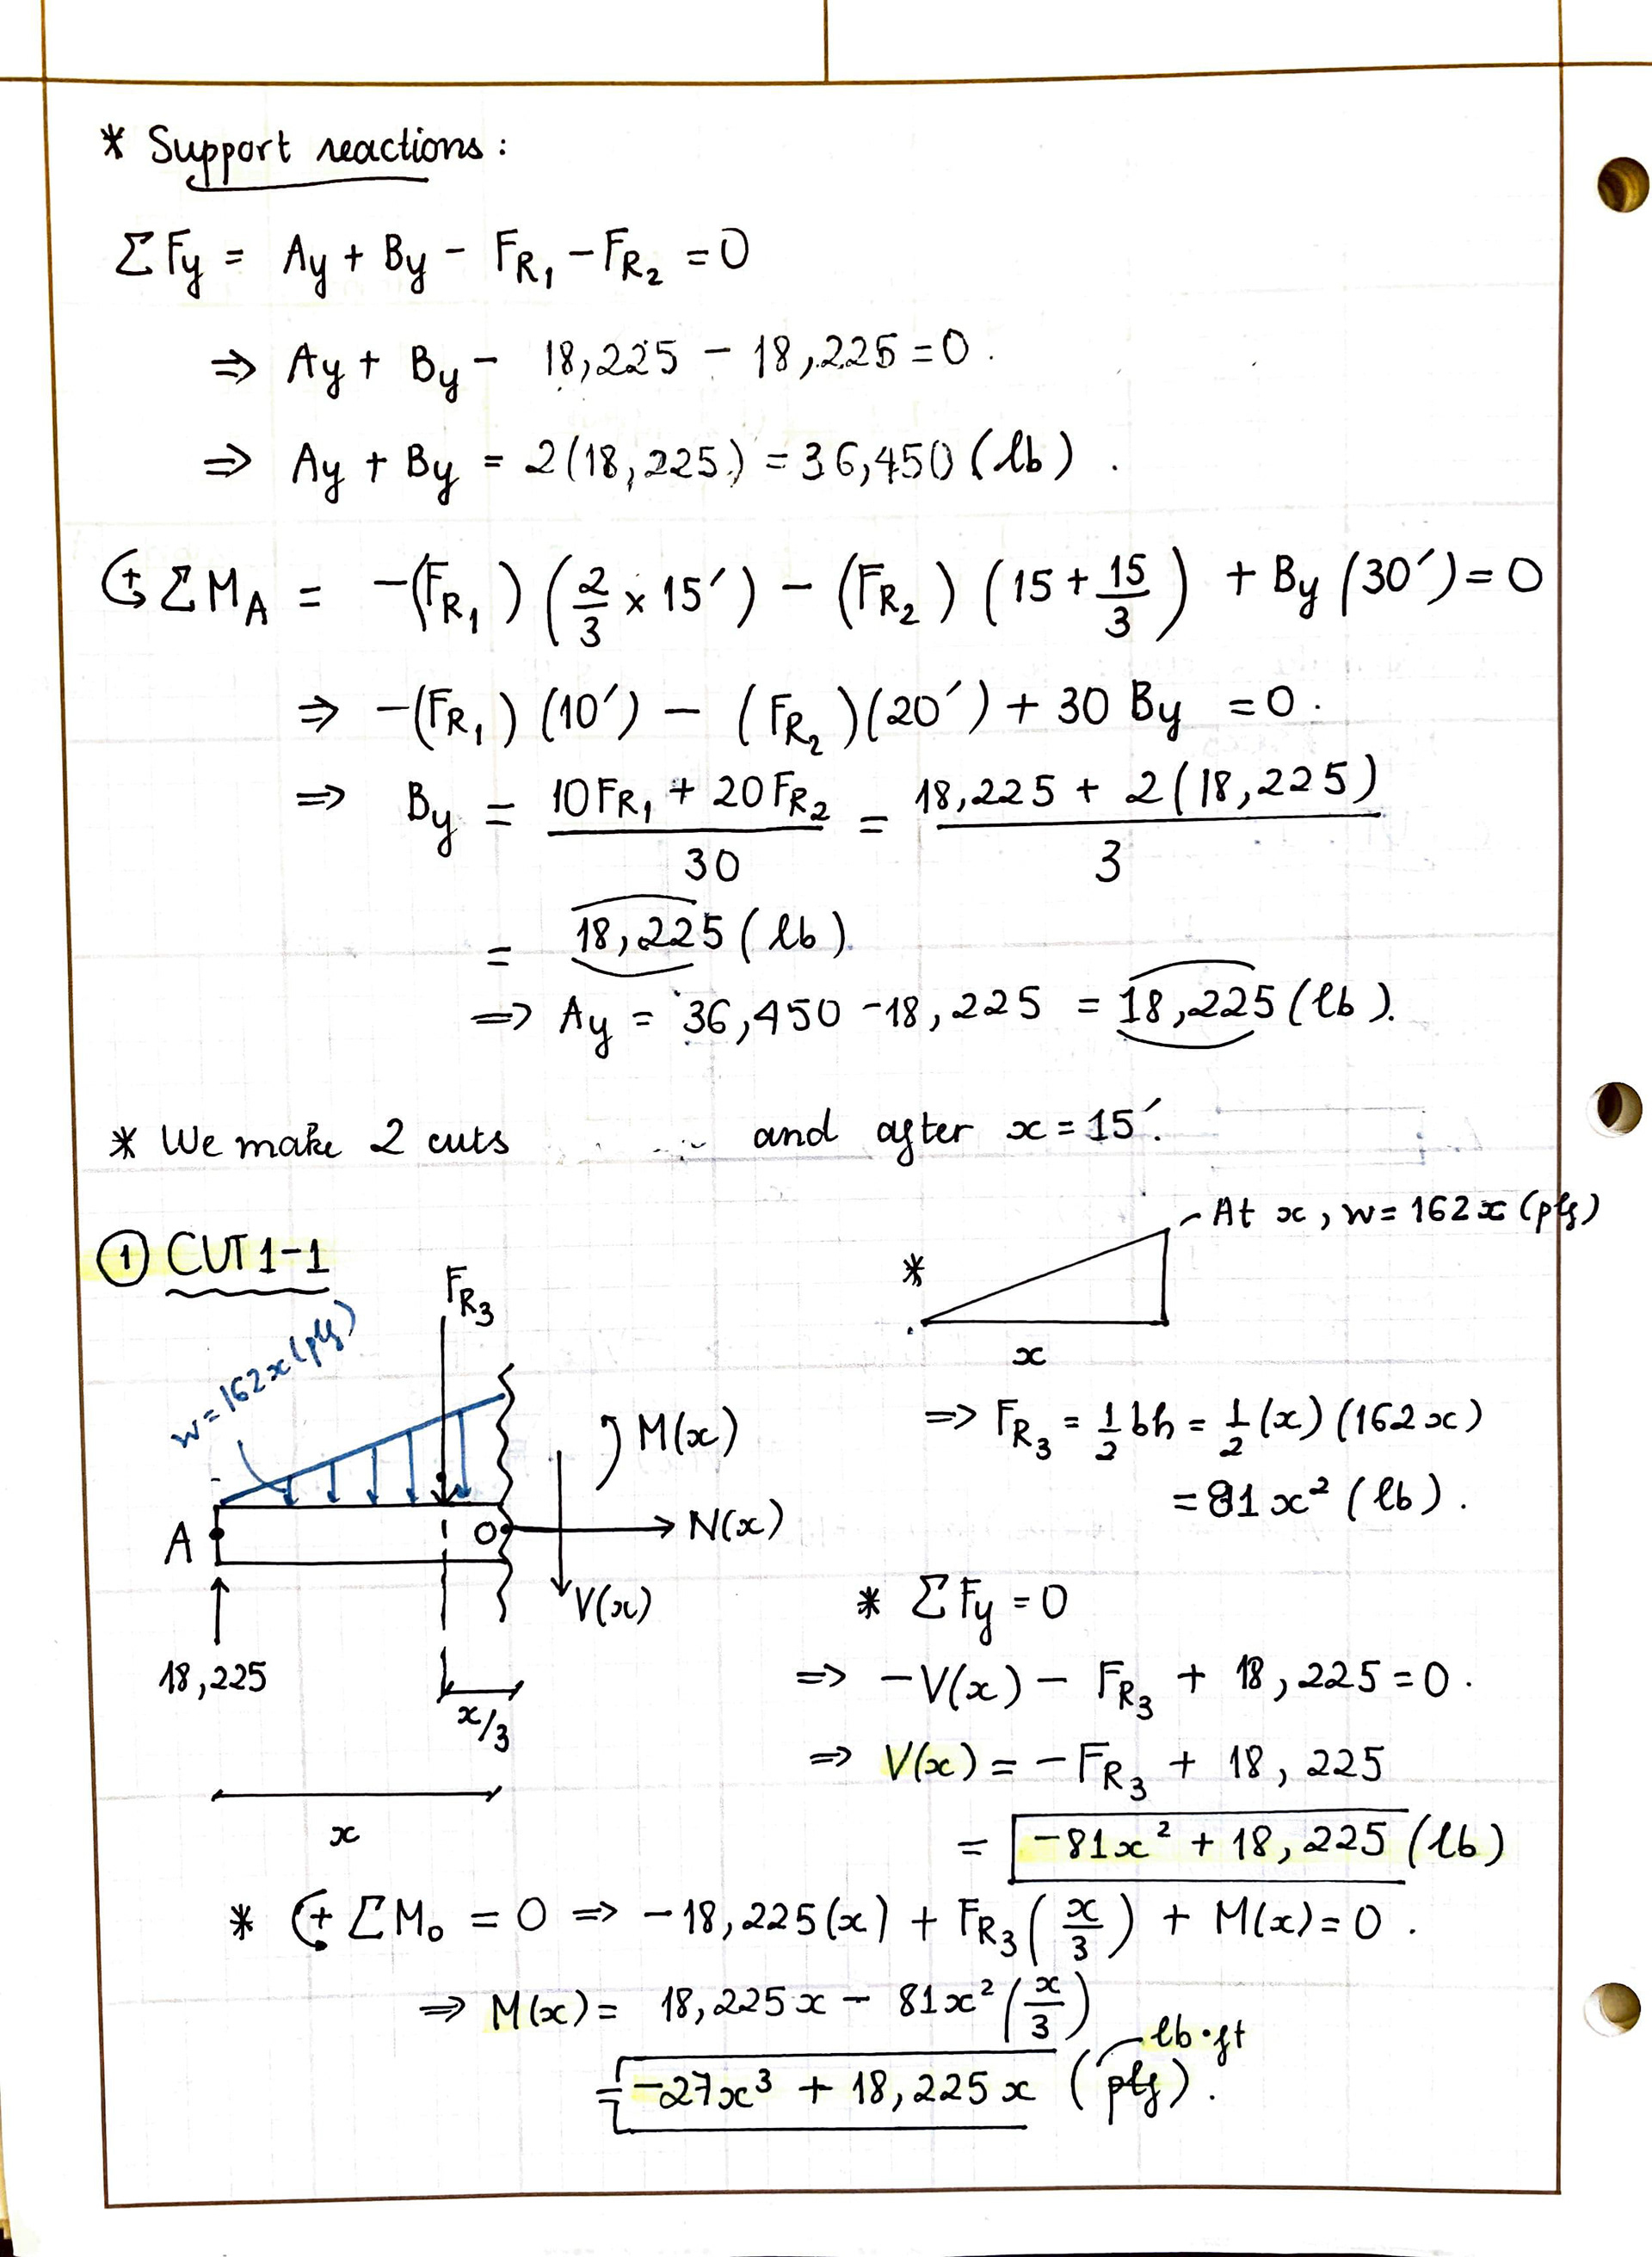 * Support reactions:
ΣFy = Ay + By - FR₁ - FR₂ = 0
⇒ Ay + By - 18,225 - 18,225 = 0.
⇒ Ay + By = 2(18,225) = 36,450 (lb).
(+ ΣM_A = -(FR₁)(2/3 × 15′) - (FR₂)(15 + 15/3) + By(30′) = 0
⇒ -(FR₁)(10′) - (FR₂)(20′) + 30 By = 0.
⇒ By = (10FR₁ + 20FR₂)/30 = (18,225 + 2(18,225))/3
= 18,225 (lb).
⇒ Ay = 36,450 - 18,225 = 18,225 (lb).
* We make 2 cuts and after x = 15′.
① CUT 1-1
FR₃
w = 162x (plf)
M(x)
A
O
N(x)
V(x)
18,225
x/3
x
At x, w = 162x (plf)
*
x
⇒ FR₃ = 1/2 bh = 1/2 (x)(162x)
= 81x² (lb).
* ΣFy = 0
⇒ -V(x) - FR₃ + 18,225 = 0.
⇒ V(x) = -FR₃ + 18,225
= -81x² + 18,225 (lb)
* (+ ΣM₀ = 0 ⇒ -18,225(x) + FR₃(x/3) + M(x) = 0.
⇒ M(x) = 18,225x - 81x²(x/3)
lb·ft
= -27x³ + 18,225x (plf).